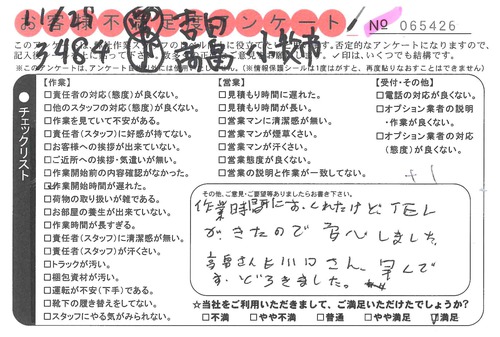 11/29
お客様不満足度アンケート
No 065426
吉田
3486
高島
小牧市
このアンケートは
否定的なアンケートになりますので、
✓印は、いくつでも結構です。
(※情報保護シールは1度はがすと、再度貼りなおすことはできません)
チェックリスト
【作業】
□責任者の対応(態度)が良くない。
□他のスタッフの対応(態度)が良くない。
□作業を見ていて不安がある。
□責任者(スタッフ)に好感が持てない。
□お客様への挨拶が出来ていない。
□ご近所への挨拶・気遣いが無い。
□作業開始前の内容確認がなかった。
☑作業開始時間が遅れた。
□荷物の取り扱いが雑である。
□お部屋の養生が出来ていない。
□作業時間が長すぎる。
□責任者(スタッフ)に清潔感が無い。
□責任者(スタッフ)が汗くさい。
□トラックが汚い。
□梱包資材が汚い。
□運転が不安(下手)である。
□靴下の履き替えをしてない。
□スタッフにやる気がみられない。
【営業】
□見積もり時間に遅れた。
□見積もり時間が長い。
□営業マンに清潔感が無い。
□営業マンが煙草くさい。
□営業マンが汗くさい。
□営業態度が良くない。
□営業の説明と作業が一致してない。
【受付・その他】
□電話の対応が良くない。
□オプション業者の説明
・作業が良くない。
□オプション業者の対応
(態度)が良くない。
その他、ご意見・ご要望等ありましたらお書き下さい。
作業時間におくれたけどTEL
がきたので安心しました。
高島さんと川口さん、早くて
すごいときました。
☆当社をご利用いただきまして、ご満足いただけたでしょうか?
□不満 □やや不満 □普通 □やや満足 ☑満足